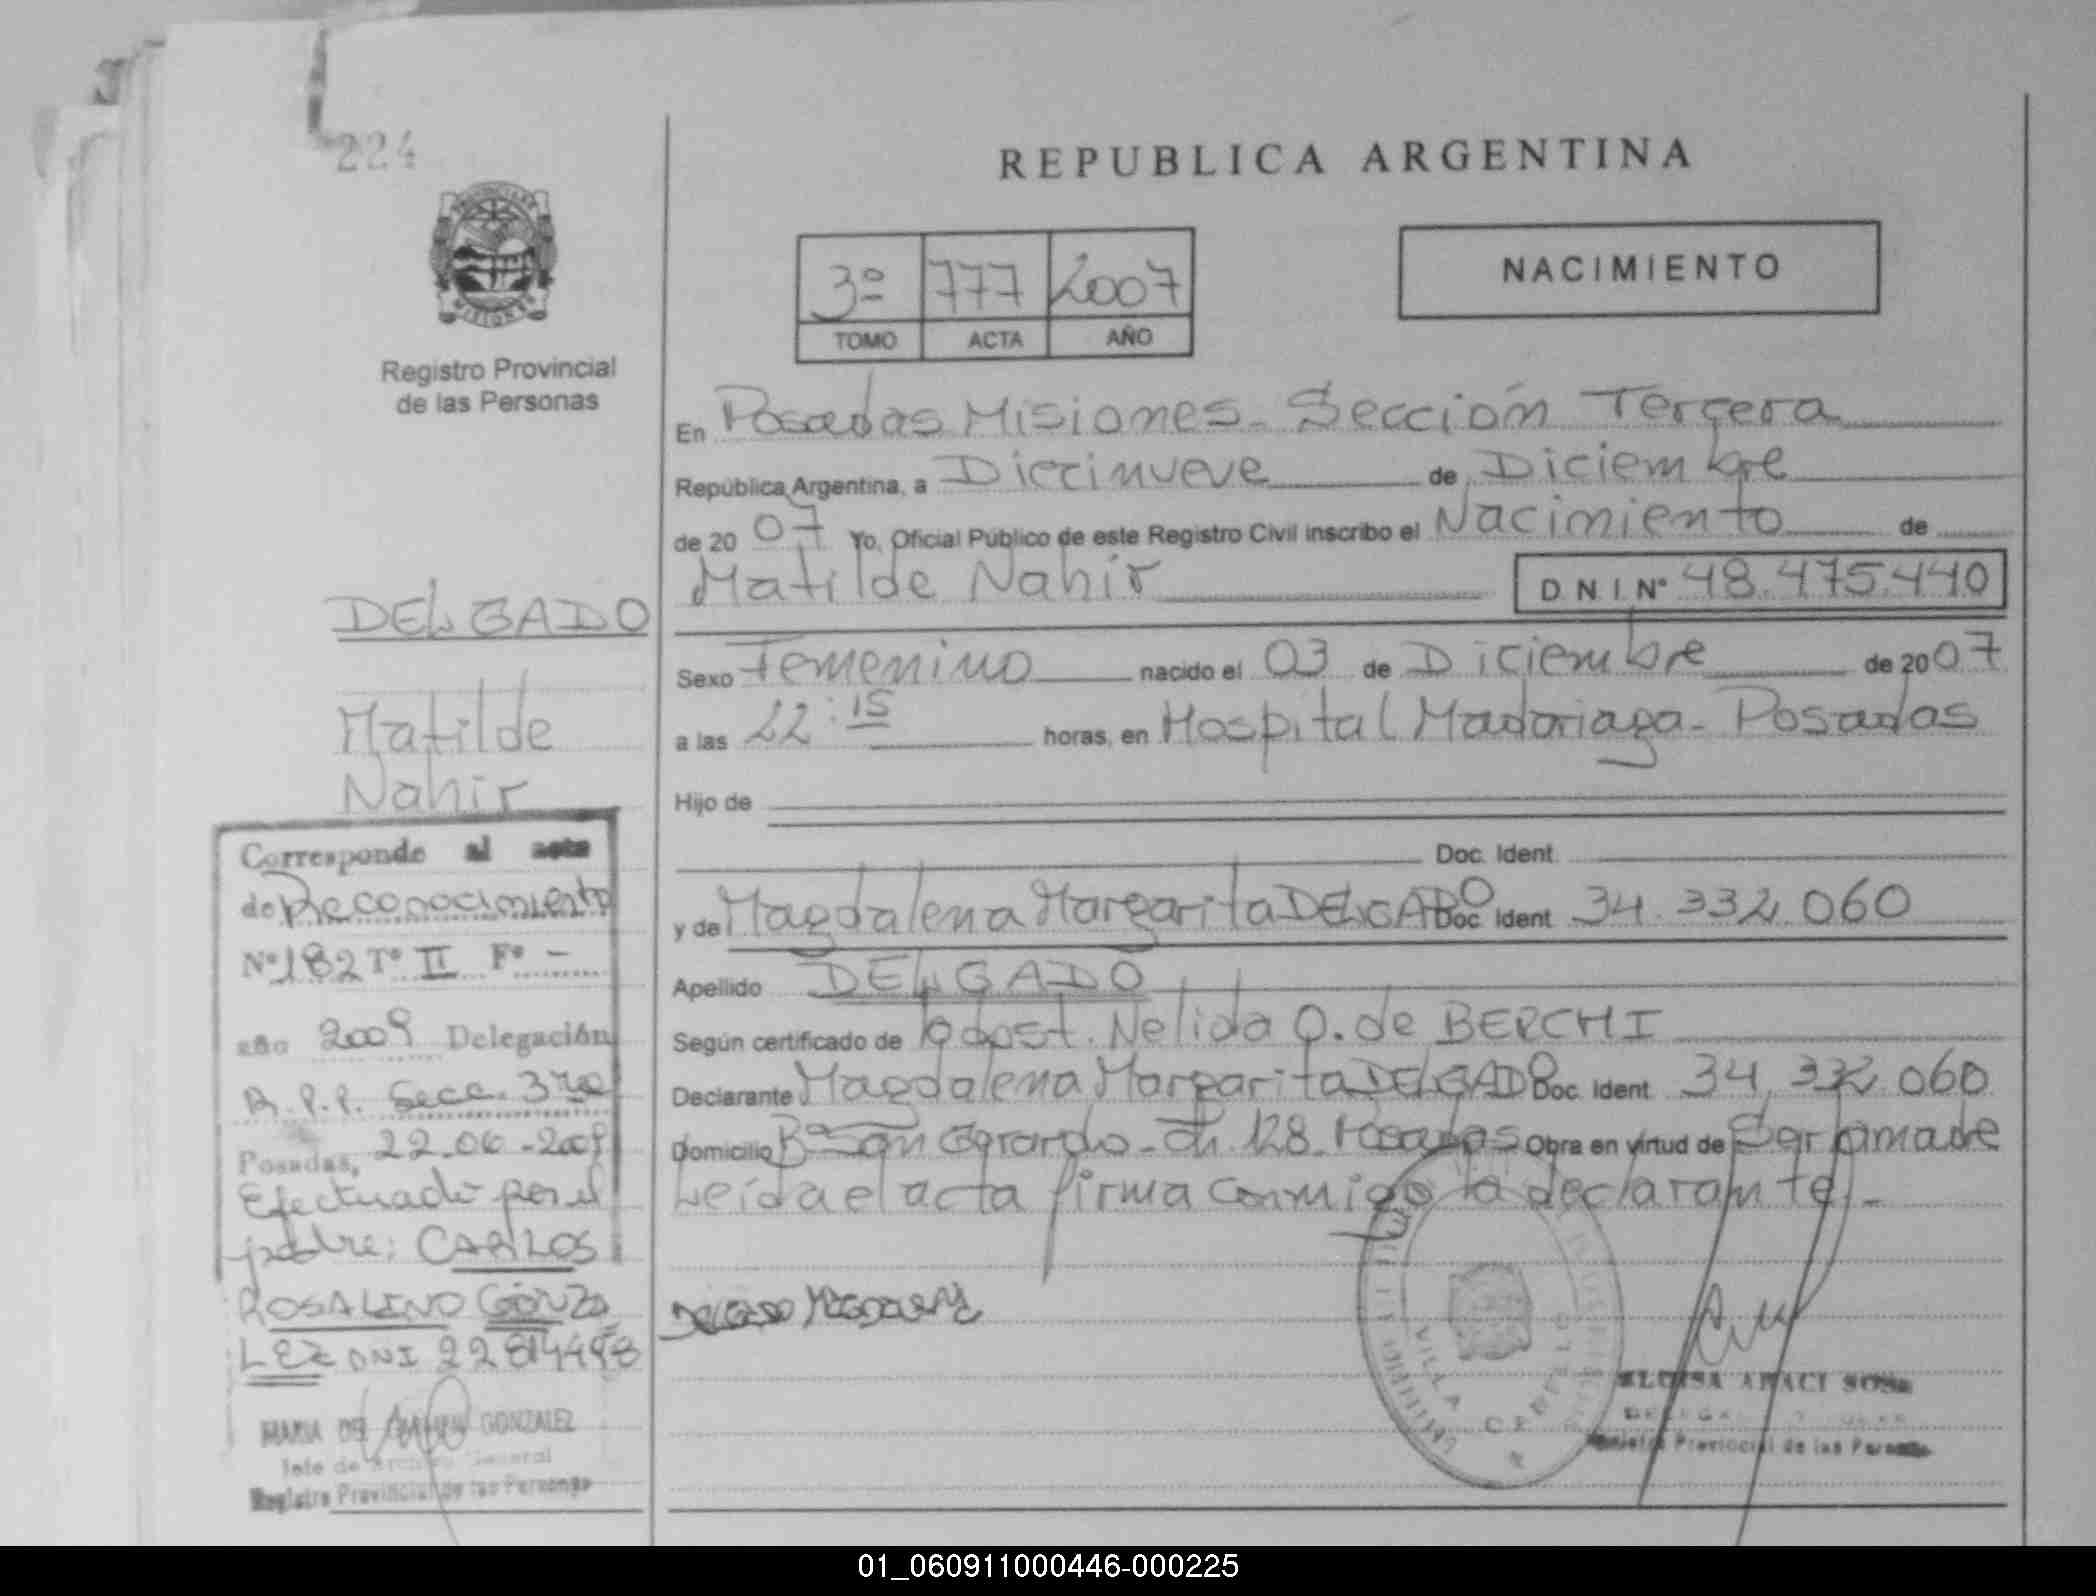 224
REPUBLICA ARGENTINA
3º 777 2007
TOMO ACTA AÑO
NACIMIENTO
Registro Provincial
de las Personas
En Posadas Misiones - Sección Tercera
República Argentina, a Diecinueve de Diciembre
de 2007 Yo, Oficial Público de este Registro Civil inscribo el Nacimiento de
Matilde Nahir DNI Nº 48.475.440
Sexo Femenino nacido el 03 de Diciembre de 2007
a las 22:15 horas, en Hospital Madariaga - Posadas
Hijo de
Doc. Ident.
y de Magdalena Margarita DELGADO Doc. Ident. 34.332.060
Apellido DELGADO
Según certificado de Obst. Nelida O. de BERCHI
Declarante Magdalena Margarita DELGADO Doc. Ident. 34.332.060
Domicilio Bº San Gerardo - Ch. 128. Posadas Obra en virtud de Ser la madre
Leída el acta firma conmigo la declarante. -
DELGADO MAGDALENA
VILLA CABELLO
ELOISA ARACI SOSA
Registro Provincial de las Personas
DELGADO
Matilde
Nahir
Corresponde al acta
de Reconocimiento
Nº 182 Tº II Fº -
año 2009 Delegación
R.P.P. Secc. 3ra
Posadas, 22-06-2009
Efectuado por el
padre: CARLOS
ROSALINO GONZA
LEZ DNI 22814498
MARIA DEL CARMEN GONZALEZ
Jefe de Archivo General
Registro Provincial de las Personas
01_060911000446-000225